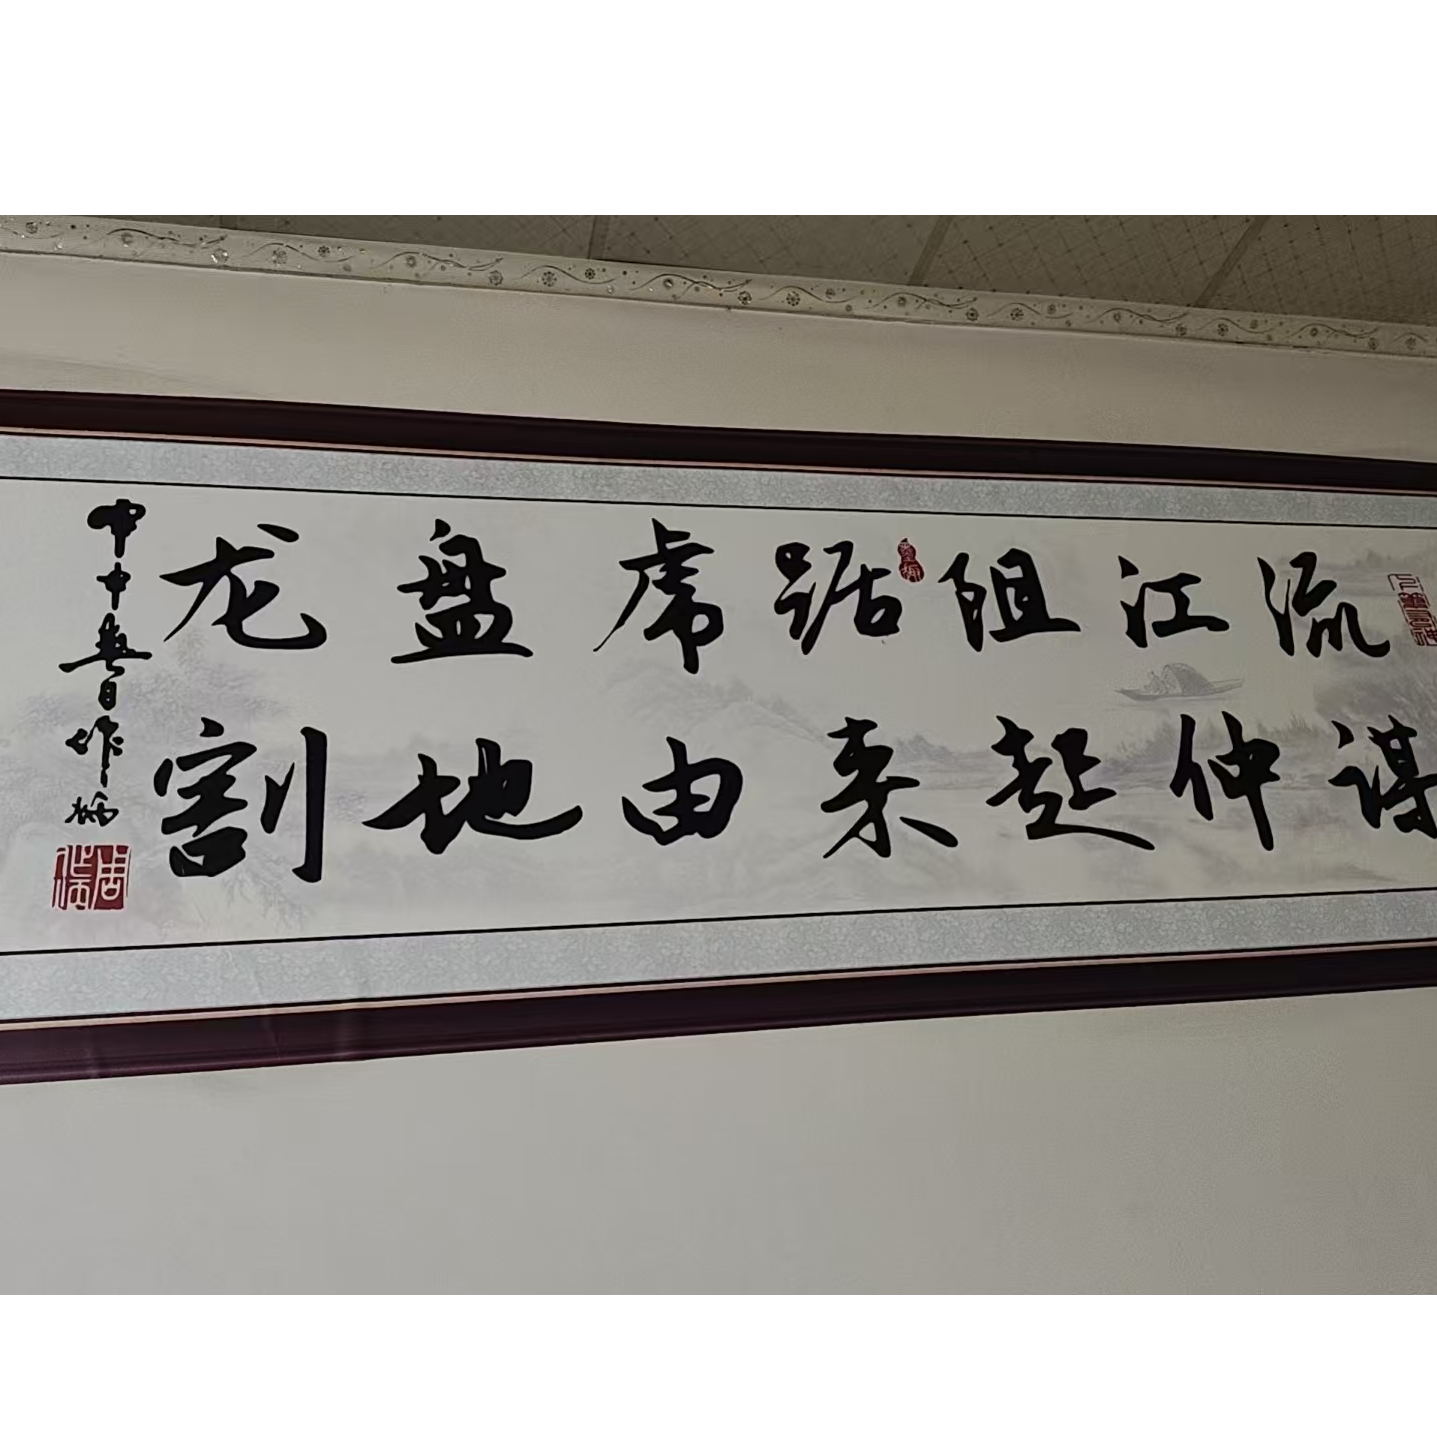 龙盘虎踞阻江流
割地由来起仲谋
甲申春日作
周